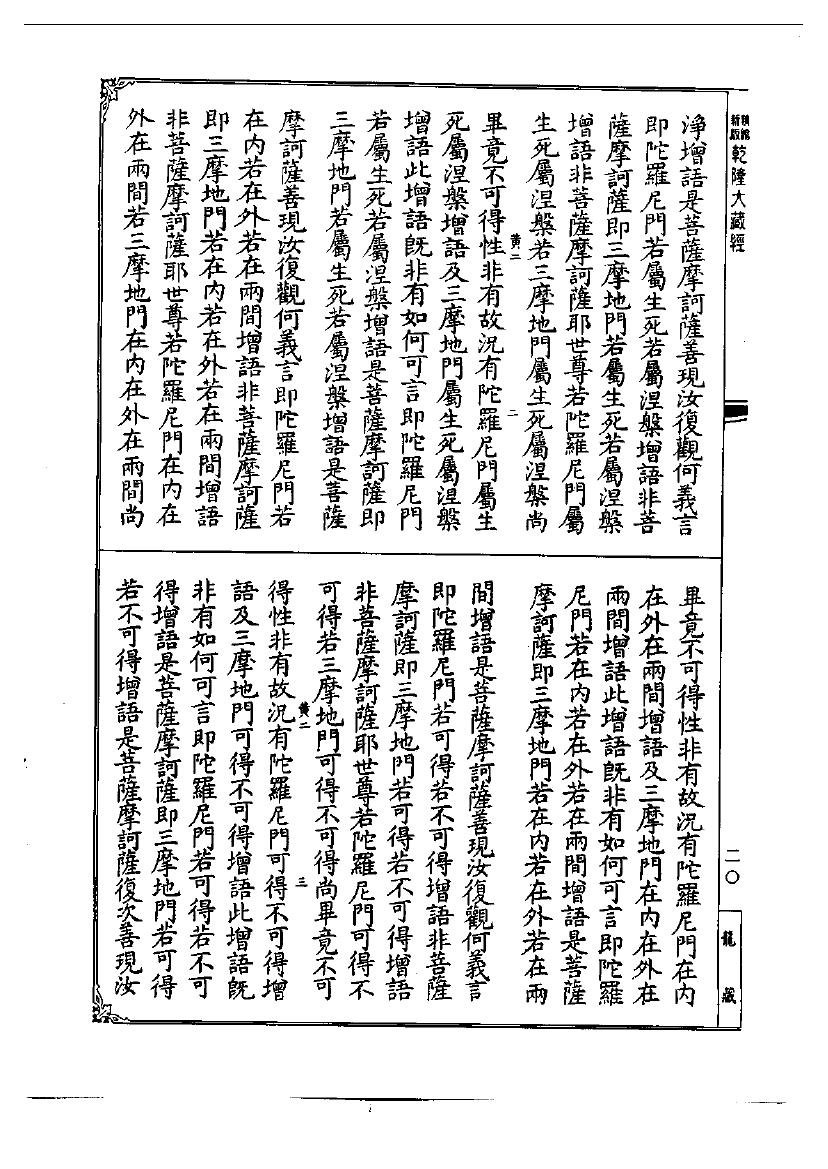 乾隆大藏經
淨增語是菩薩摩訶薩善現汝復觀何義言
即陀羅尼門若屬生死若屬涅槃增語非菩
薩摩訶薩即三摩地門若屬生死若屬涅槃
增語非菩薩摩訶薩耶世尊若陀羅尼門屬
生死屬涅槃若三摩地門屬生死屬涅槃尚
畢竟不可得性非有故況有陀羅尼門屬生
黄二
二
死屬涅槃增語及三摩地門屬生死屬涅槃
增語此增語旣非有如何可言即陀羅尼門
若屬生死若屬涅槃增語是菩薩摩訶薩即
三摩地門若屬生死若屬涅槃增語是菩薩
摩訶薩善現汝復觀何義言即陀羅尼門若
在内若在外若在兩間增語非菩薩摩訶薩
即三摩地門若在内若在外若在兩間增語
非菩薩摩訶薩耶世尊若陀羅尼門在内在
外在兩間若三摩地門在内在外在兩間尚
畢竟不可得性非有故況有陀羅尼門在内
在外在兩間增語及三摩地門在内在外在
兩間增語此增語旣非有如何可言即陀羅
尼門若在内若在外若在兩間增語是菩薩
摩訶薩即三摩地門若在内若在外若在兩
間增語是菩薩摩訶薩善現汝復觀何義言
即陀羅尼門若可得若不可得增語非菩薩
摩訶薩即三摩地門若可得若不可得增語
非菩薩摩訶薩耶世尊若陀羅尼門可得不
可得若三摩地門可得不可得尚畢竟不可
黄二
三
得性非有故況有陀羅尼門可得不可得增
語及三摩地門可得不可得增語此增語旣
非有如何可言即陀羅尼門若可得若不可
得增語是菩薩摩訶薩即三摩地門若可得
若不可得增語是菩薩摩訶薩復次善現汝
二〇
龍藏